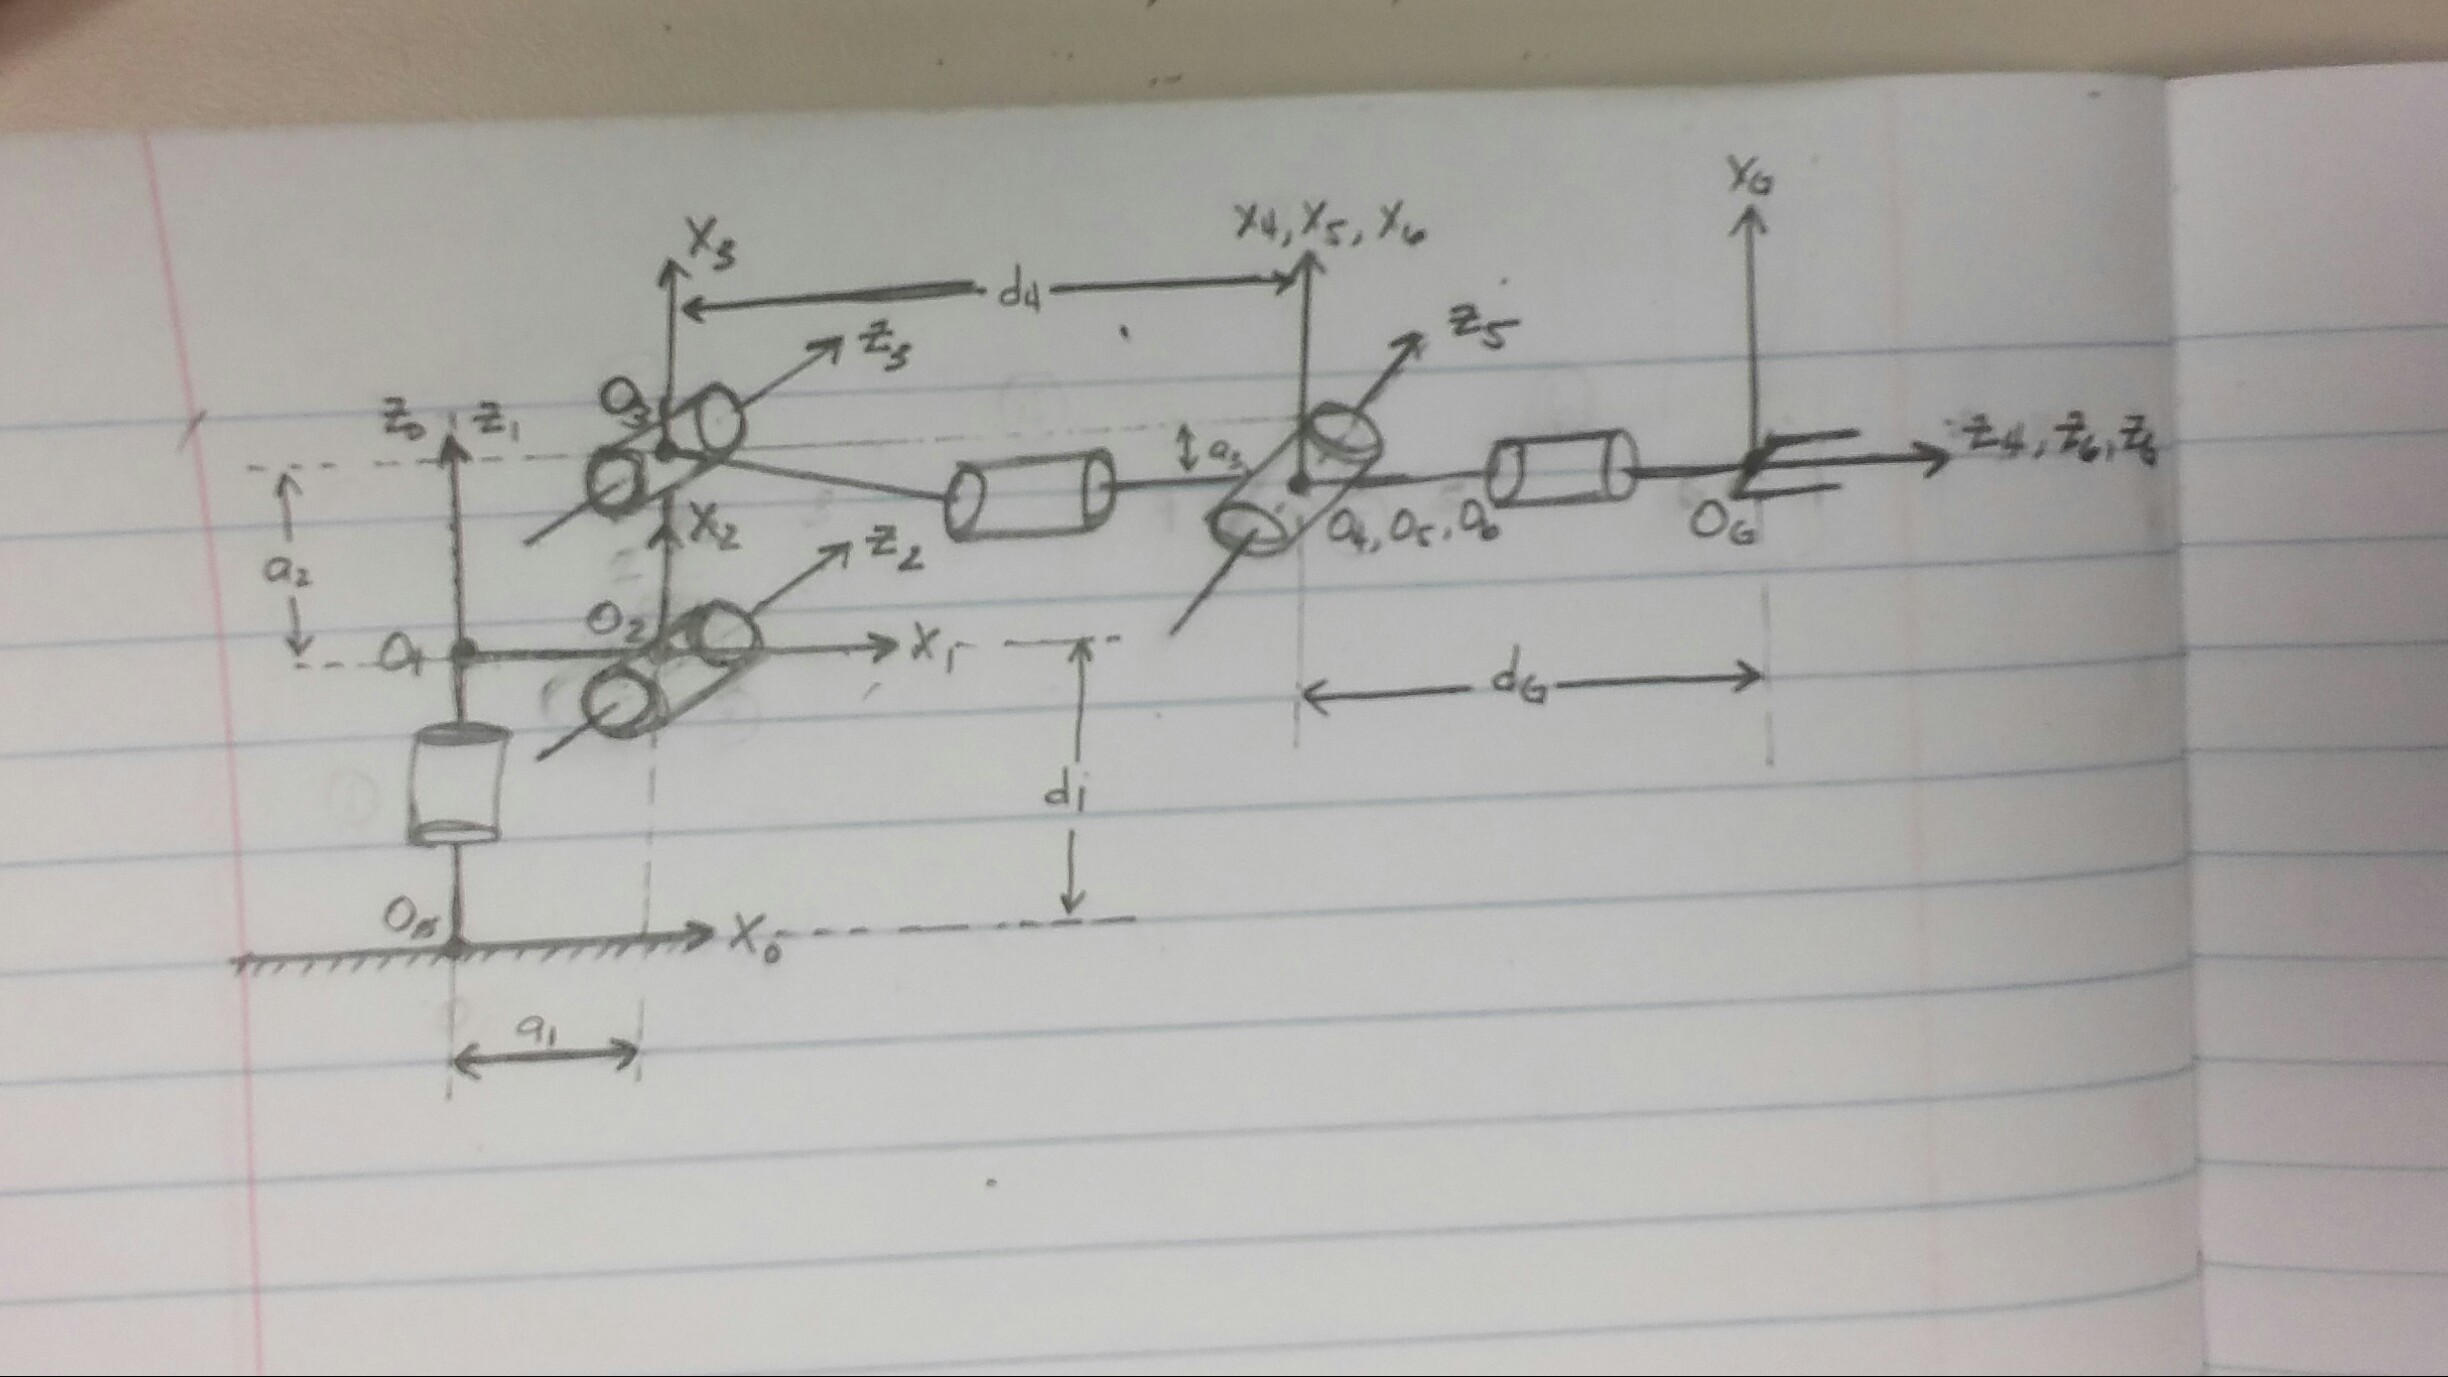 X3
X4, X5, X6
XG
d4
Z3
Z5
O3
Z0 Z1
a3
Z4, Z6, ZG
X2
O4, O5, O6
OG
a2
Z2
O2
O1
X1
dG
d1
O0
X0
a1